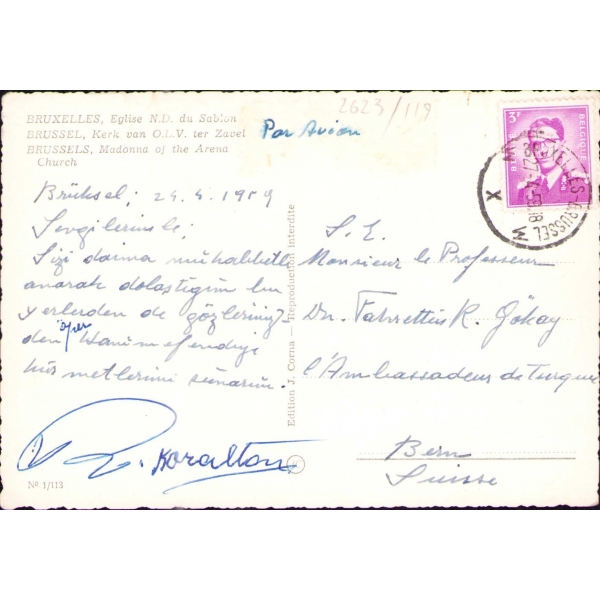 2623/119
BRUXELLES, Eglise N.D. du Sablon
BRUSSEL, Kerk van O.L.V. ter Zavel
BRUSSELS, Madonna of the Arena
Church
Par Avion
3F
BELGIQUE
BRUXELLES-BRUSSEL
X
Brüksel; 24. 4. 1959
Sevgilerimle;
Sizi daima muhabbetle
anarak dolaştığım bu
yerlerden de gözleriniz
den öper Hanımefendiye
hürmetlerimi sunarım.
R. Koraltan
Nº 1/113
Edition J. Corna — Reproduction interdite
S. E.
Monsieur le Professeur
Dr. Fahrettin K. Gökay
l'Ambassadeur de Turquie
Bern
Suisse